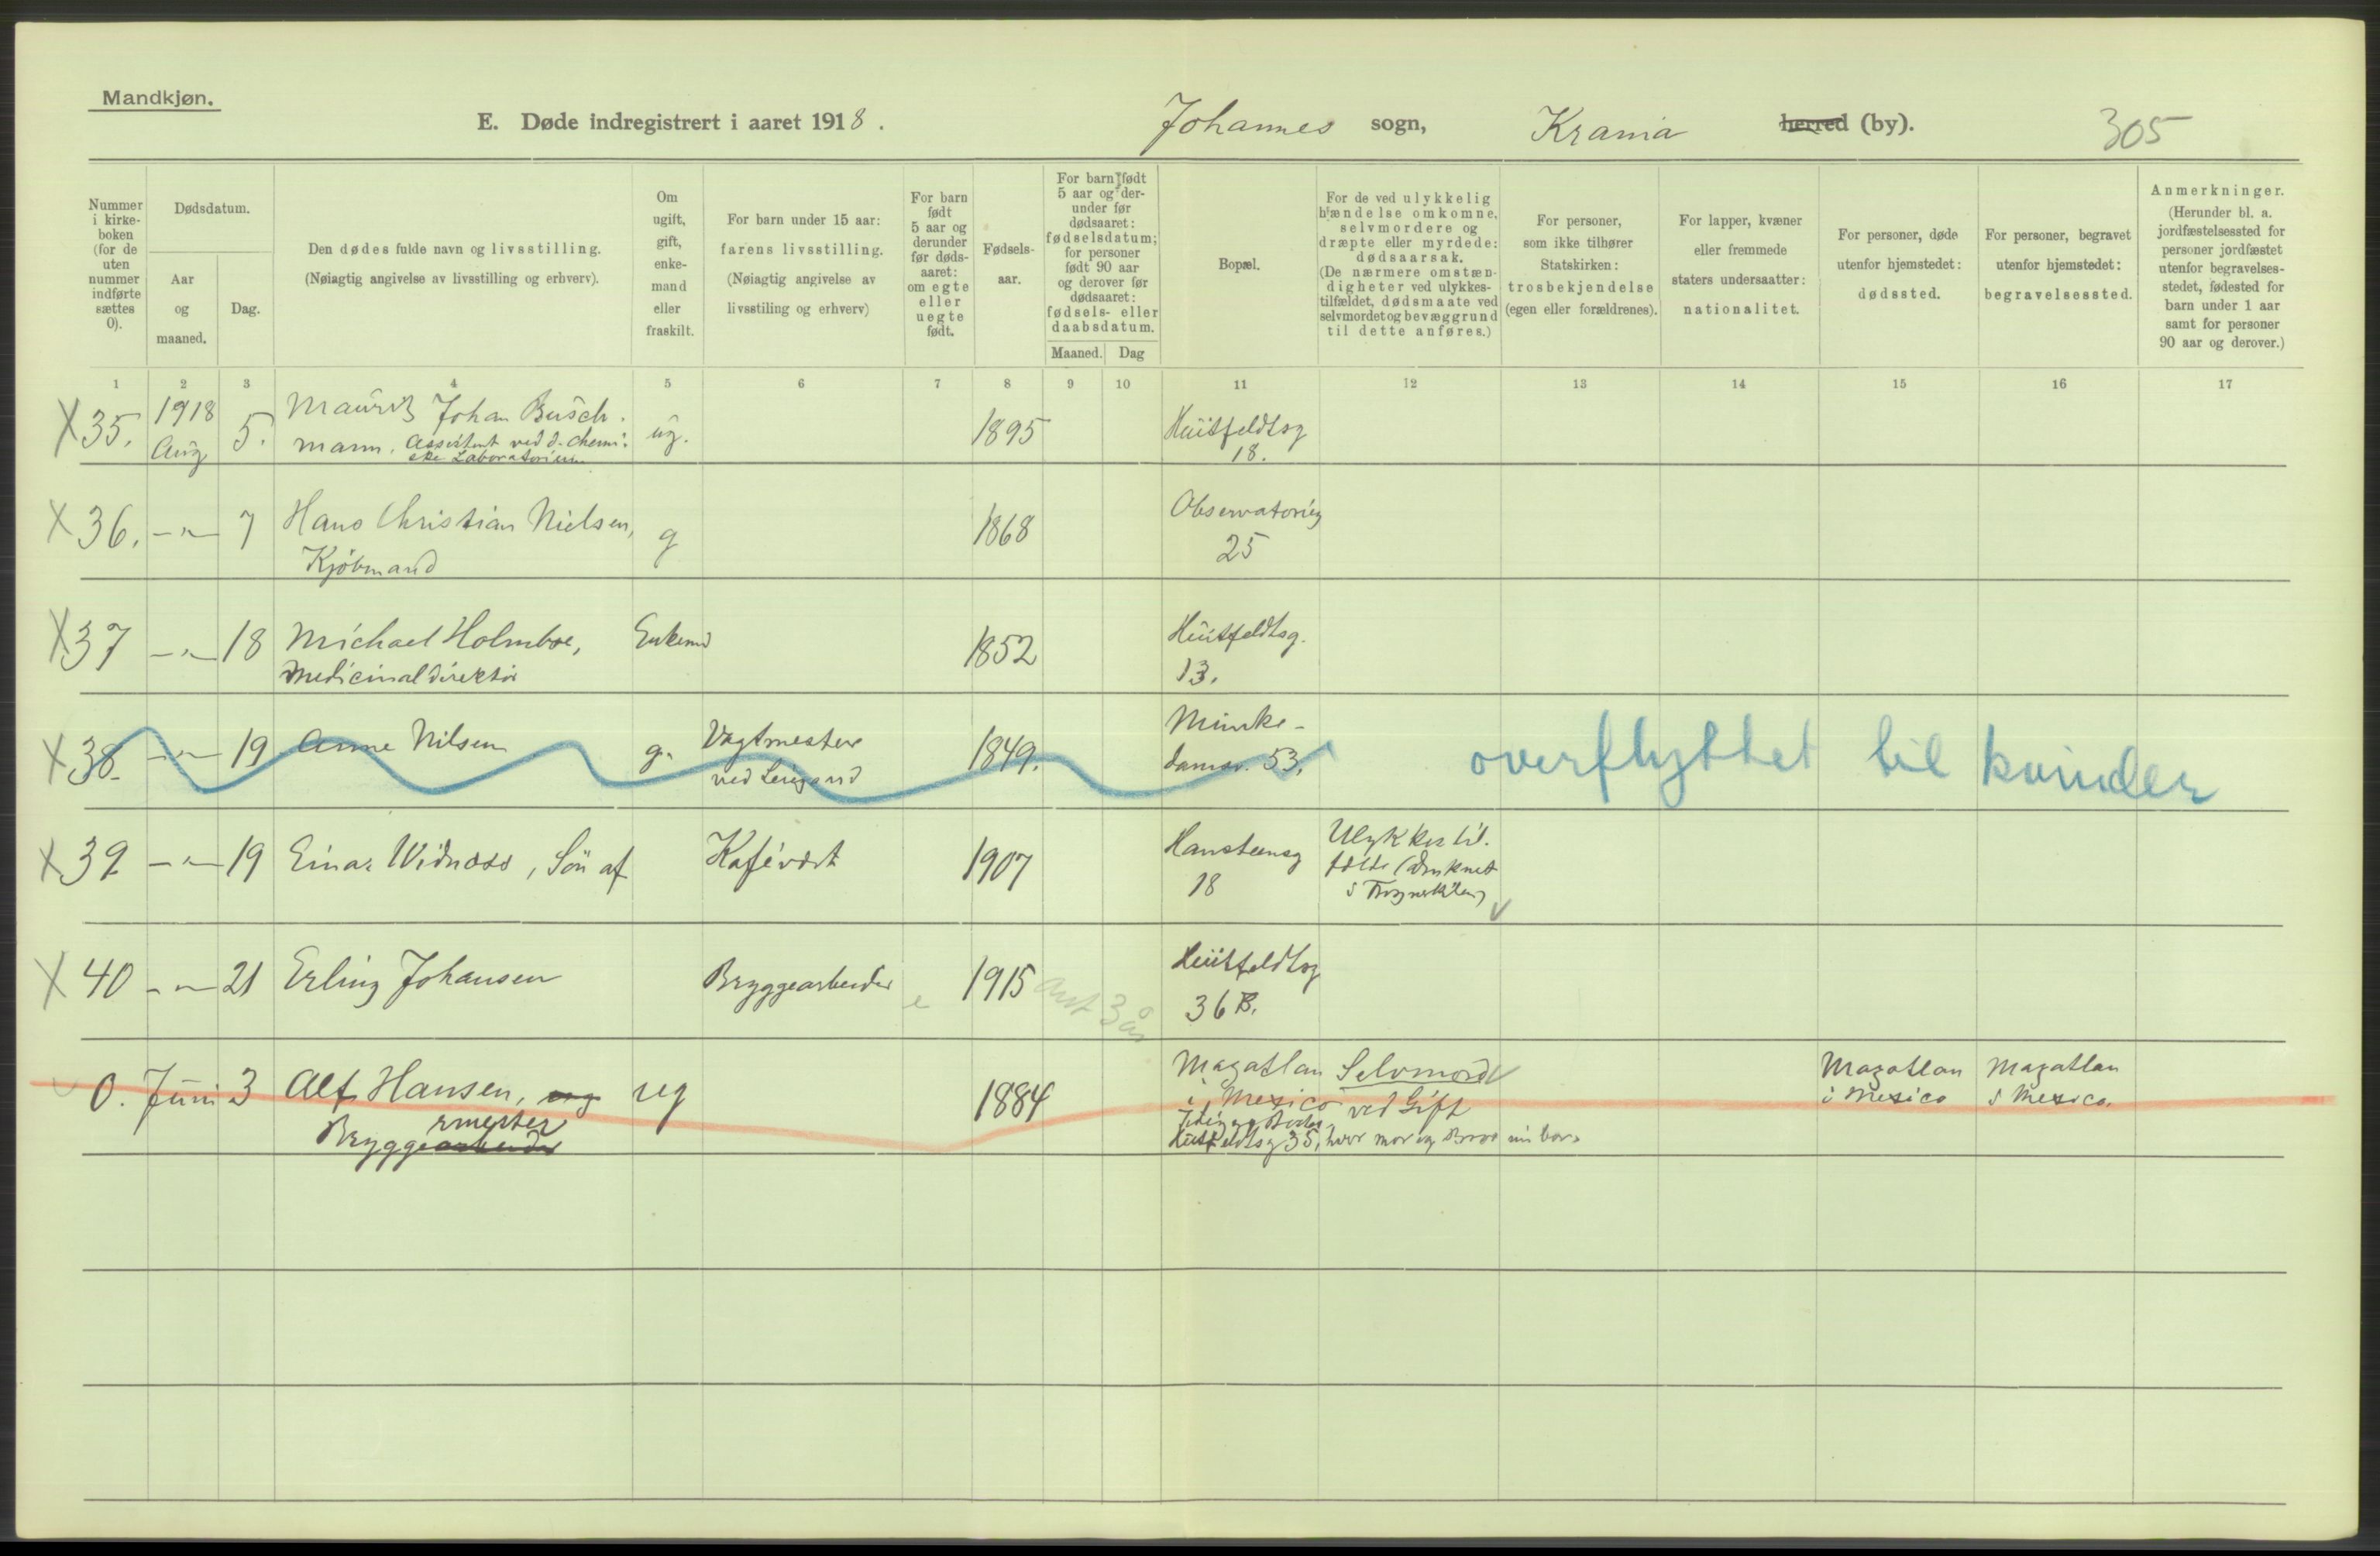 Mandkjøn.
E. Døde indregistrert i aaret 1918. Johannes sogn, Krania herred (by). 305
Nummer i kirke-boken (for de uten nummer indførte sættes 0).
Dødsdatum.
Aar og maaned.
Dag.
Den dødes fulde navn og livsstilling.
(Nøiagtig angivelse av livsstilling og erhverv).
Om ugift, gift, enke-mand eller fraskilt.
For barn under 15 aar: farens livsstilling.
(Nøiagtig angivelse av livsstiling og erhverv)
For barn født 5 aar og derunder før døds-aaret: om egte eller uegte født.
Fødsels-aar.
For barn født 5 aar og der-under før dødsaaret: fødselsdatum; for personer født 90 aar og derover før dødsaaret: fødsels- eller daabsdatum.
Maaned. Dag
Bopæl.
For de ved ulykkelig hændelse omkomne, selvmordere og dræpte eller myrdede: dødsaarsak.
(De nærmere omstæn-digheter ved ulykkes-tilfældet, dødsmaate ved selvmordet og bevæggrund til dette anføres.)
For personer, som ikke tilhører Statskirken: trosbekjendelse (egen eller forældrenes).
For lapper, kvæner eller fremmede staters undersaatter: nationalitet.
For personer, døde utenfor hjemstedet: dødssted.
For personer, begravet utenfor hjemstedet: begravelsessted.
Anmerkninger.
(Herunder bl. a. jordfæstelsessted for personer jordfæstet utenfor begravelses-stedet, fødested for barn under 1 aar samt for personer 90 aar og derover.)
1 2 3 4 5 6 7 8 9 10 11 12 13 14 15 16 17
X 35. 1918 Aug 5. Mauritz Johan Busch-mann. Assistent ved d. chemi-ske Laboratorium ug. 1895 Huitfeldtsg 18.
X 36. -"- 7 Hans Christian Nielsen, Kjöbmand g 1868 Observatorieg 25
X 37 -"- 18 Michael Holmboe, Medicinaldirektör Enkemd 1852 Huitfeldtsg. 13.
X 38. -"- 19 Anne Nilsen g. Vagtmester ved 1849. Munke-damsv. 53. overflyttet til kvinder
X 39 -"- 19 Einar Widnæss, Sön af Kafévært 1907 Hansteensg 18 Ulykkestil-fælde (druknet i
X 40 -"- 21 Erling Johansen Bryggearbeider e 1915 ant 3 år Huitfeldtsg 36 B.
0. Juni 3 Alf Hansen, ug ug 1884 Mazatlan i Mexico Selvmord ved Gift Mazatlan i Mexico Mazatlan i Mexico.
Bryggearbeider rmester Huitfeldtsg 35, hvor mor og Bror nu bor.